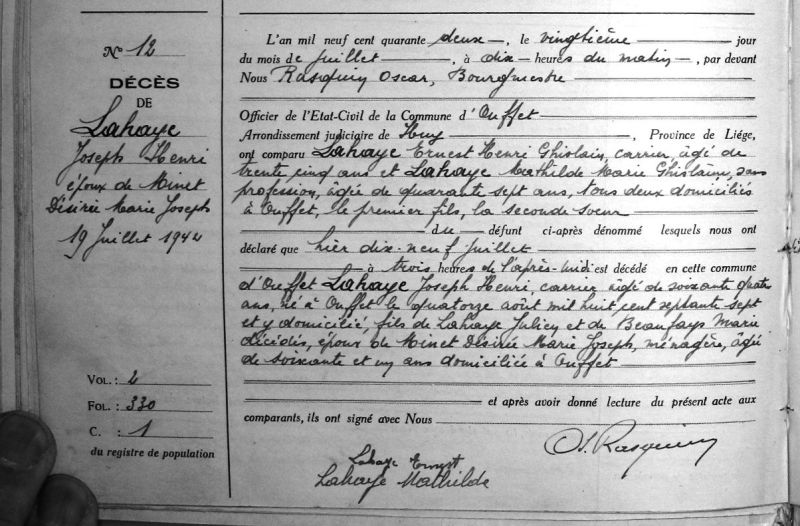 N° 12
DÉCÈS
DE
Lahaye
Joseph Henri
époux de Minet
Désirée Marie Joseph
19 Juillet 1942
VOL. : 2
FOL. : 330
C. : 1
du registre de population
L'an mil neuf cent quarante deux, le vingtième jour
du mois de Juillet, à dix heures du matin, par devant
Nous Rasquin Oscar, Bourgmestre
Officier de l'Etat-Civil de la Commune d'Ouffet
Arrondissement judiciaire de Huy, Province de Liége,
ont comparu Lahaye Ernest Henri Ghislain, carrier, âgé de
trente cinq ans et Lahaye Mathilde Marie Ghislain, sans
profession, âgée de quarante sept ans, tous deux domiciliés
à Ouffet, le premier fils, la seconde soeur
du défunt ci-après dénommé lesquels nous ont
déclaré que hier dix-neuf juillet
à trois heures de l'après-midi est décédé en cette commune
d'Ouffet Lahaye Joseph Henri, carrier âgé de soixante quatre
ans, né à Ouffet le quatorze août mil huit cent septante sept
et y domicilié, fils de Lahaye Julien et de Beaufays Marie
décédés, époux de Minet Désirée Marie Joseph, ménagère, âgée
de soixante et un ans domiciliée à Ouffet
et après avoir donné lecture du présent acte aux
comparants, ils ont signé avec Nous
O. Rasquin
Lahaye Ernest
Lahaye Mathilde